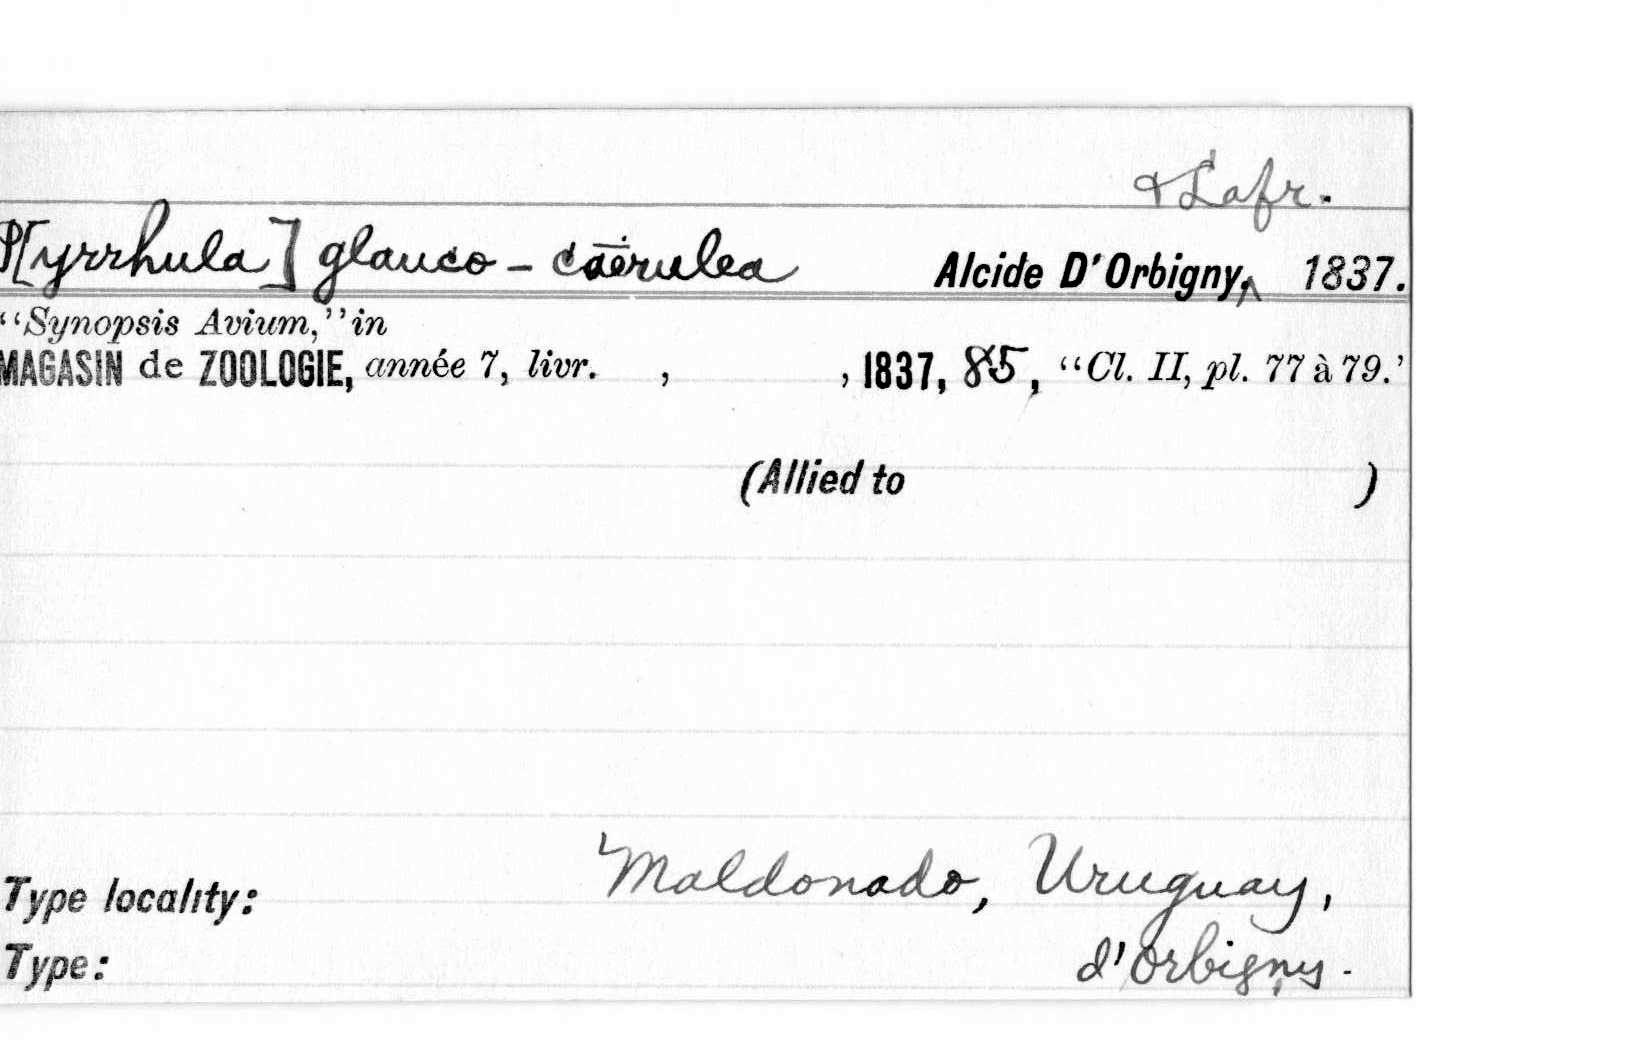 & Lafr.
P[yrrhula] glauco-caerulea Alcide D'Orbigny,^ 1837.
“Synopsis Avium,” in
MAGASIN de ZOOLOGIE, année 7, livr. , , 1837, 85, “Cl. II, pl. 77 à 79.’
(Allied to )
Type locality: Maldonado, Uruguay,
Type: d'Orbigny.